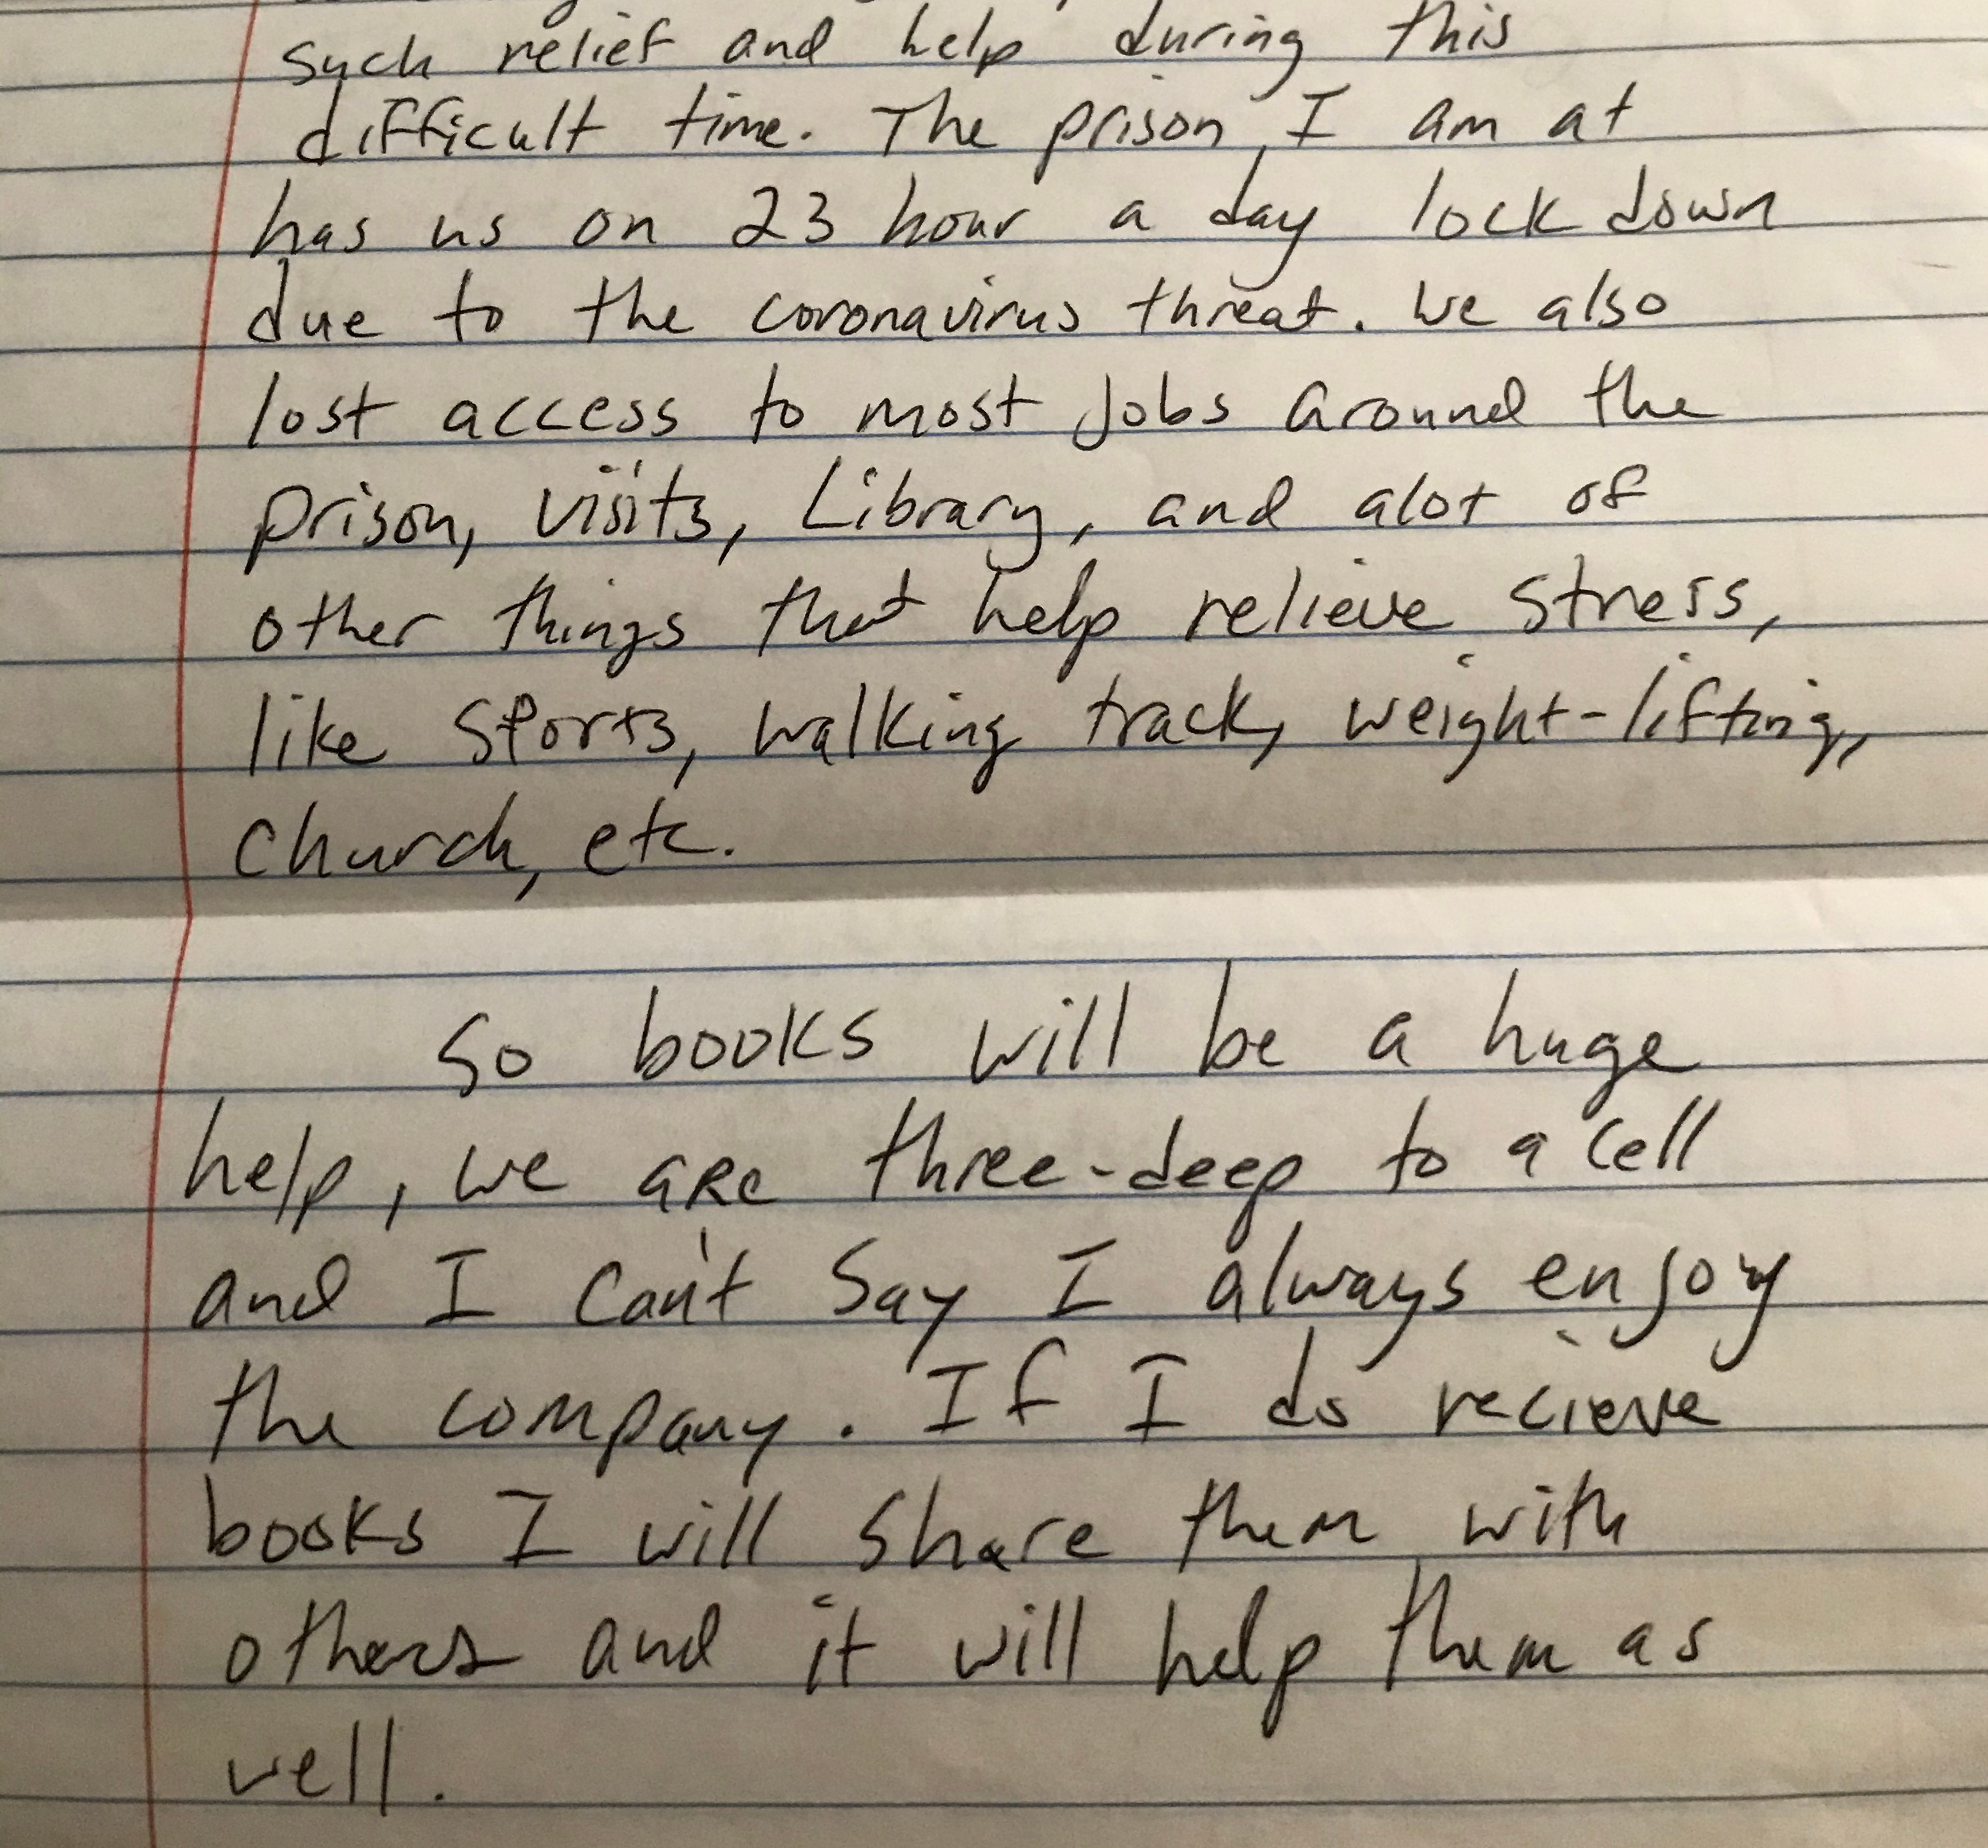 such relief and help during this
difficult time. The prison I am at
has us on 23 hour a day lock down
due to the coronavirus threat. We also
lost access to most jobs around the
prison, visits, Library, and alot of
other things that help relieve stress,
like sports, walking track, weight-lifting,
church, etc.
So books will be a huge
help, we are three-deep to a cell
and I can't say I always enjoy
the company. If I do recieve
books I will share them with
others and it will help them as
well.